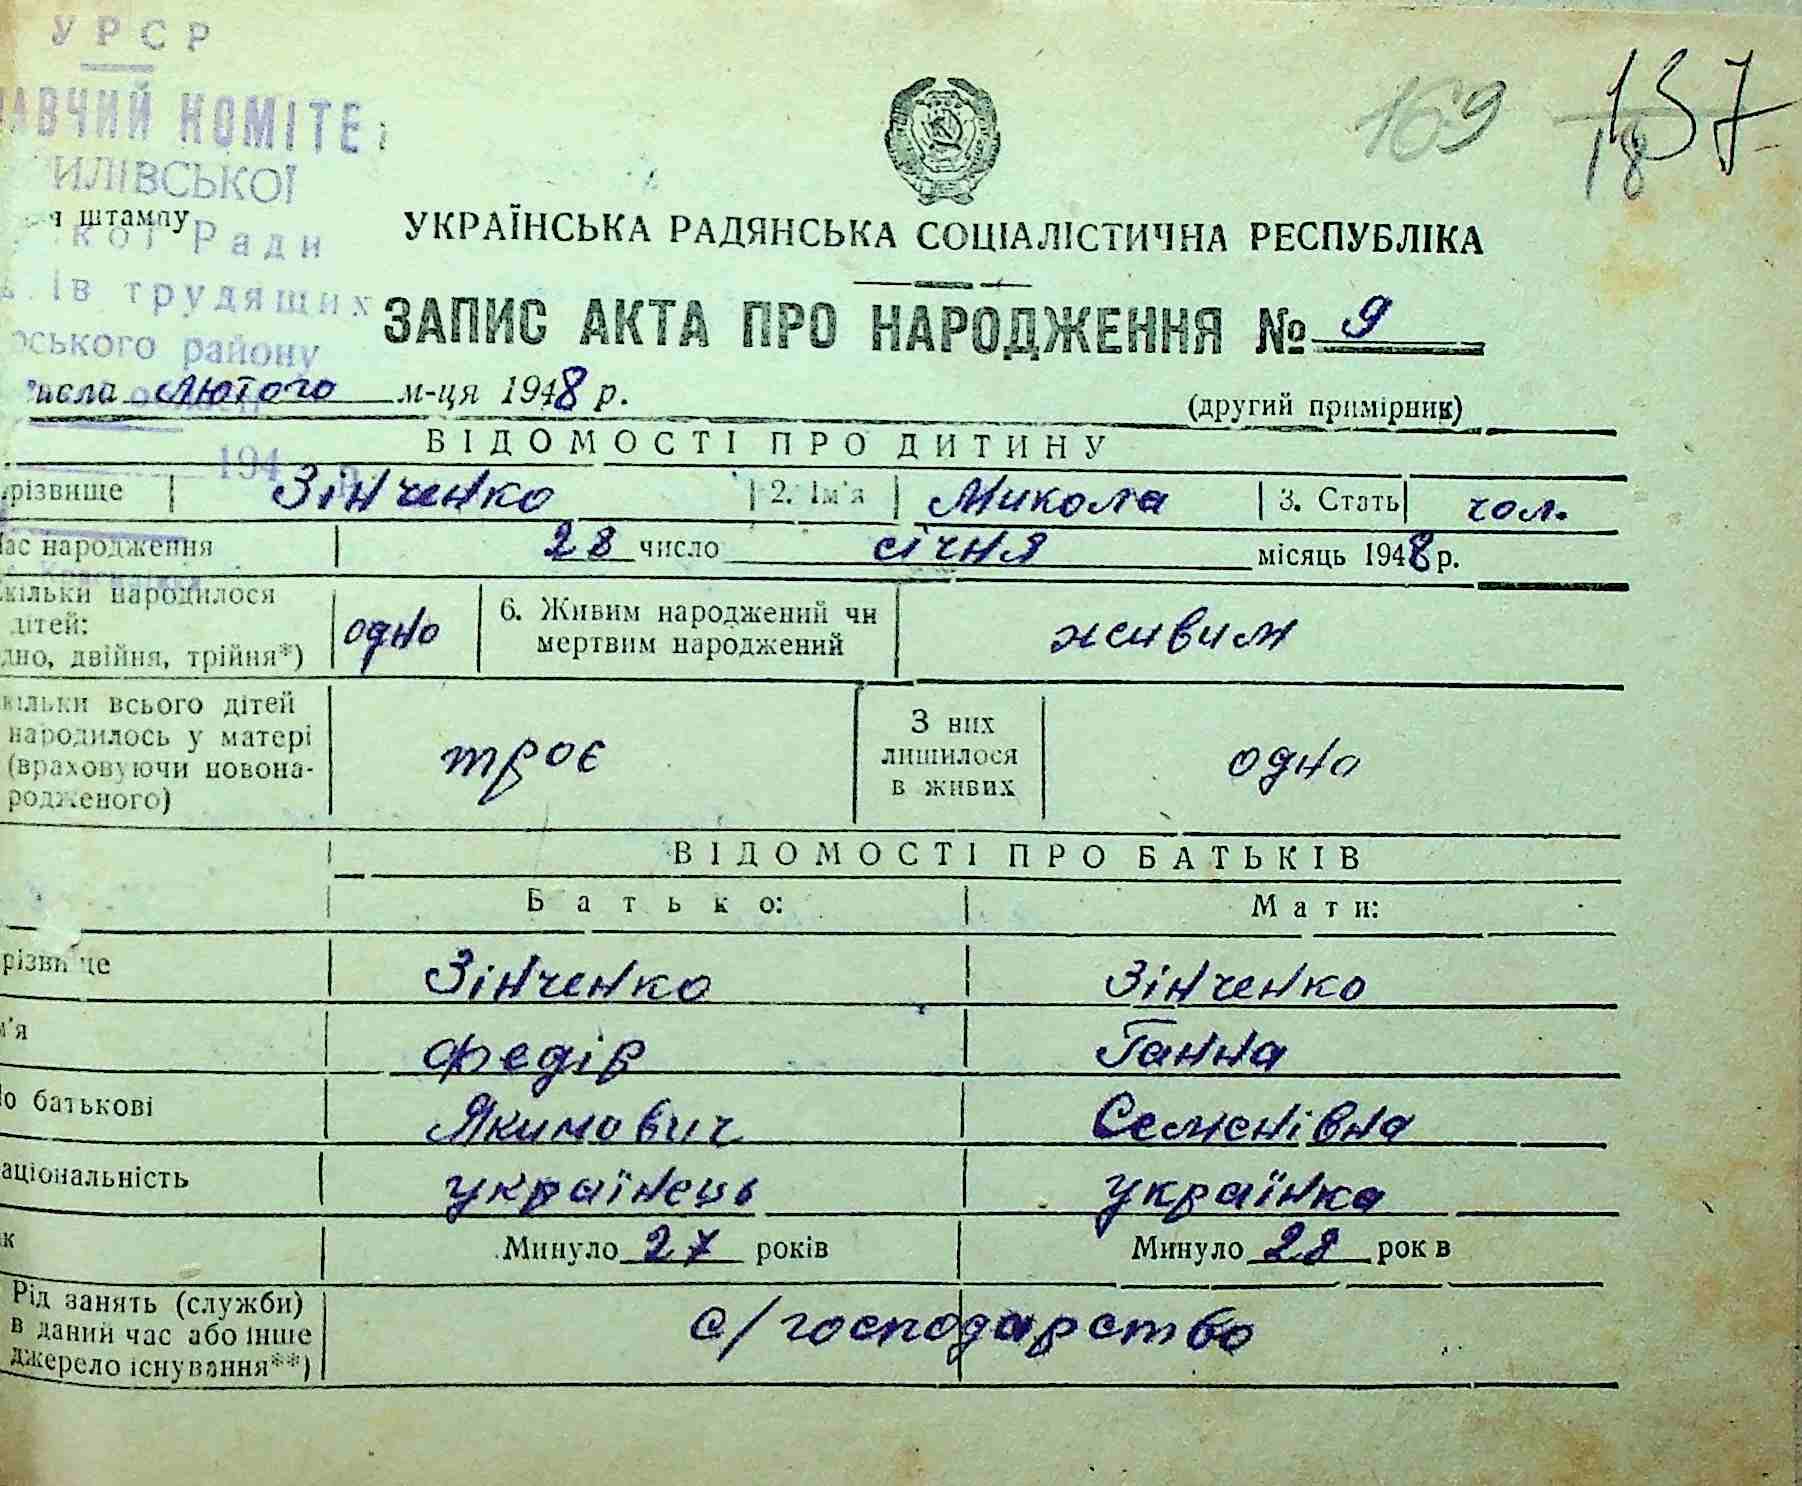 УРСР
АВЧИЙ КОМІТЕ
ИЛІВСЬКОЇ
я штампу
кої Ради
ів трудящих
ського району
169
137
18
УКРАЇНСЬКА РАДЯНСЬКА СОЦІАЛІСТИЧНА РЕСПУБЛІКА
ЗАПИС АКТА ПРО НАРОДЖЕННЯ № 9
числа лютого м-ця 1948 р.
(другий примірник)
194 р.
ВІДОМОСТІ ПРО ДИТИНУ
різвище Зінченко 2. Ім'я Микола 3. Стать чол.
Час народження 28 число січня місяць 1948 р.
кільки народилося
дітей:
дно, двійня, трійня*) одно 6. Живим народжений чи
мертвим народжений живим
кільки всього дітей
народилось у матері
(враховуючи новона-
родженого) троє З них
лишилося
в живих одно
ВІДОМОСТІ ПРО БАТЬКІВ
Батько: Мати:
різвище Зінченко Зінченко
м'я Федір Ганна
По батькові Якимович Семенівна
аціональність українець українка
к Минуло 27 років Минуло 28 рок в
Рід занять (служби)
в даний час або інше
джерело існування**) с/господарство